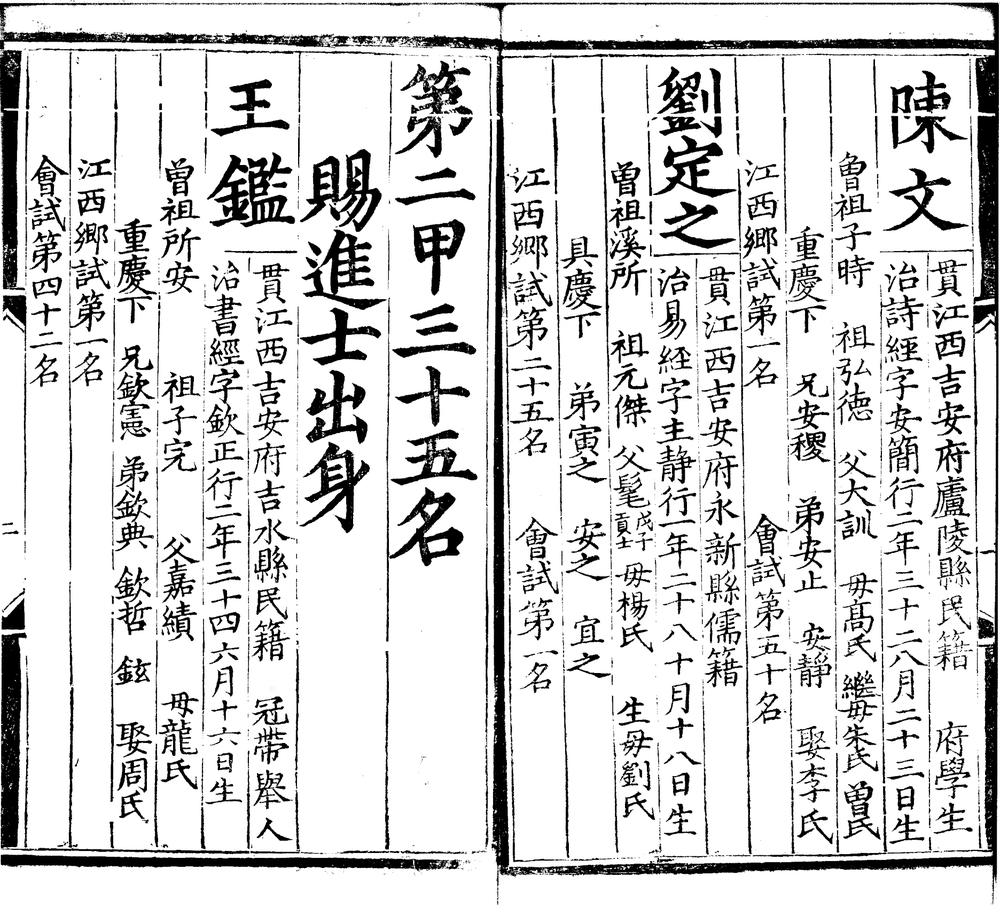 陳文
貫江西吉安府廬陵縣民籍 府學生
治詩經字安簡行二年三十二八月二十三日生
曾祖子時 祖弘德 父大訓 母高氏 繼母朱氏 曾氏
重慶下 兄安稷 弟安止 安靜 娶李氏
江西鄉試第一名 會試第五十名
劉定之
貫江西吉安府永新縣儒籍
治易經字主靜行一年二十八十月十八日生
曾祖溪所 祖元傑 父髦戊子貢士 母楊氏 生母劉氏
具慶下 弟寅之 安之 宜之
江西鄉試第二十五名 會試第一名
第二甲三十五名
賜進士出身
王鑑
貫江西吉安府吉水縣民籍 冠帶舉人
治書經字欽正行二年三十四六月十六日生
曾祖所安 祖子完 父嘉績 母龍氏
重慶下 兄欽憲 弟欽典 欽哲 鉉 娶周氏
江西鄉試第一名
會試第四十二名
二